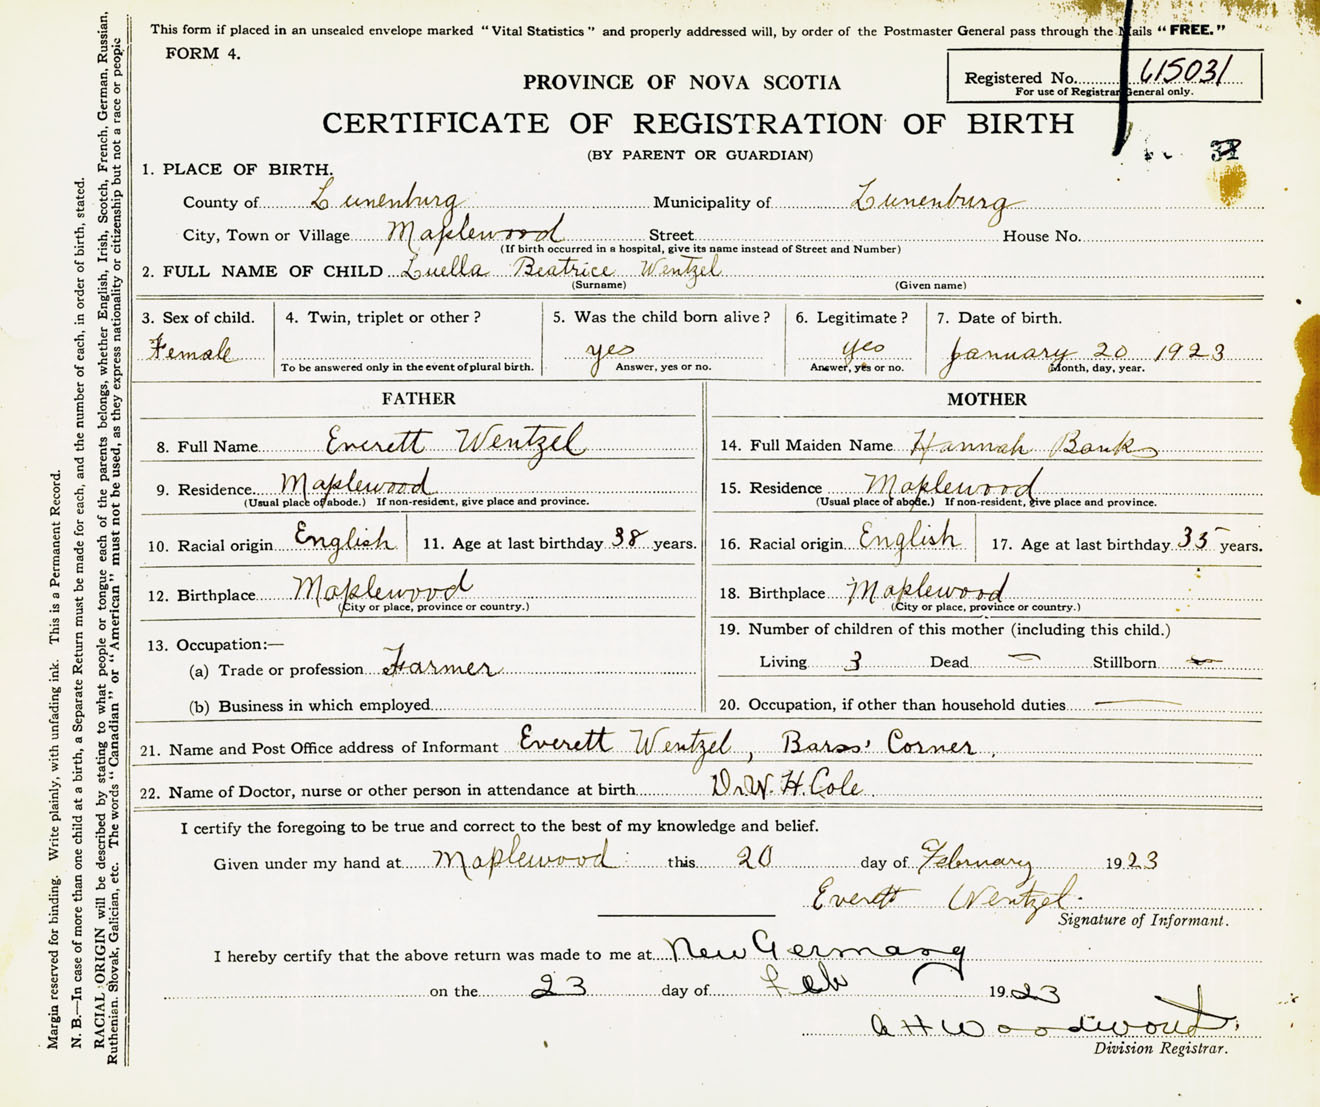 This form if placed in an unsealed envelope marked "Vital Statistics" and properly addressed will, by order of the Postmaster General pass through the Mails "FREE."
FORM 4.
Registered No. 615031
For use of Registrar General only.
PROVINCE OF NOVA SCOTIA
CERTIFICATE OF REGISTRATION OF BIRTH
(BY PARENT OR GUARDIAN)
1. PLACE OF BIRTH.
County of Lunenburg Municipality of Lunenburg
City, Town or Village Maplewood Street House No.
(If birth occurred in a hospital, give its name instead of Street and Number)
2. FULL NAME OF CHILD Luella Beatrice Wentzel
(Surname) (Given name)
3. Sex of child. 4. Twin, triplet or other? 5. Was the child born alive? 6. Legitimate? 7. Date of birth.
Female yes yes January 20 1923
To be answered only in the event of plural birth. Answer, yes or no. Answer, yes or no. Month, day, year.
FATHER MOTHER
8. Full Name Everett Wentzel 14. Full Maiden Name Hannah Banks
9. Residence Maplewood 15. Residence Maplewood
(Usual place of abode.) If non-resident, give place and province. (Usual place of abode.) If non-resident, give place and province.
10. Racial origin English 11. Age at last birthday 38 years. 16. Racial origin English 17. Age at last birthday 35 years.
12. Birthplace Maplewood 18. Birthplace Maplewood
(City or place, province or country.) (City or place, province or country.)
13. Occupation:— 19. Number of children of this mother (including this child.)
(a) Trade or profession Farmer Living 3 Dead — Stillborn —
(b) Business in which employed 20. Occupation, if other than household duties —
21. Name and Post Office address of Informant Everett Wentzel, Barss' Corner.
22. Name of Doctor, nurse or other person in attendance at birth Dr. W. H. Cole.
I certify the foregoing to be true and correct to the best of my knowledge and belief.
Given under my hand at Maplewood this 20 day of February 1923
Everett Wentzel.
Signature of Informant.
I hereby certify that the above return was made to me at New Germany
on the 23 day of Feb 1923
A H Woodworth
Division Registrar.
Margin reserved for binding. Write plainly, with unfading ink. This is a Permanent Record.
N. B.—In case of more than one child at a birth, a Separate Return must be made for each, and the number of each, in order of birth, stated.
RACIAL ORIGIN will be described by stating to what people or tongue each of the parents belongs, whether English, Irish, Scotch, French, German, Russian,
Ruthenian, Slovak, Galician, etc. The words "Canadian" or "American" must not be used, as they express nationality or citizenship but not a race or people